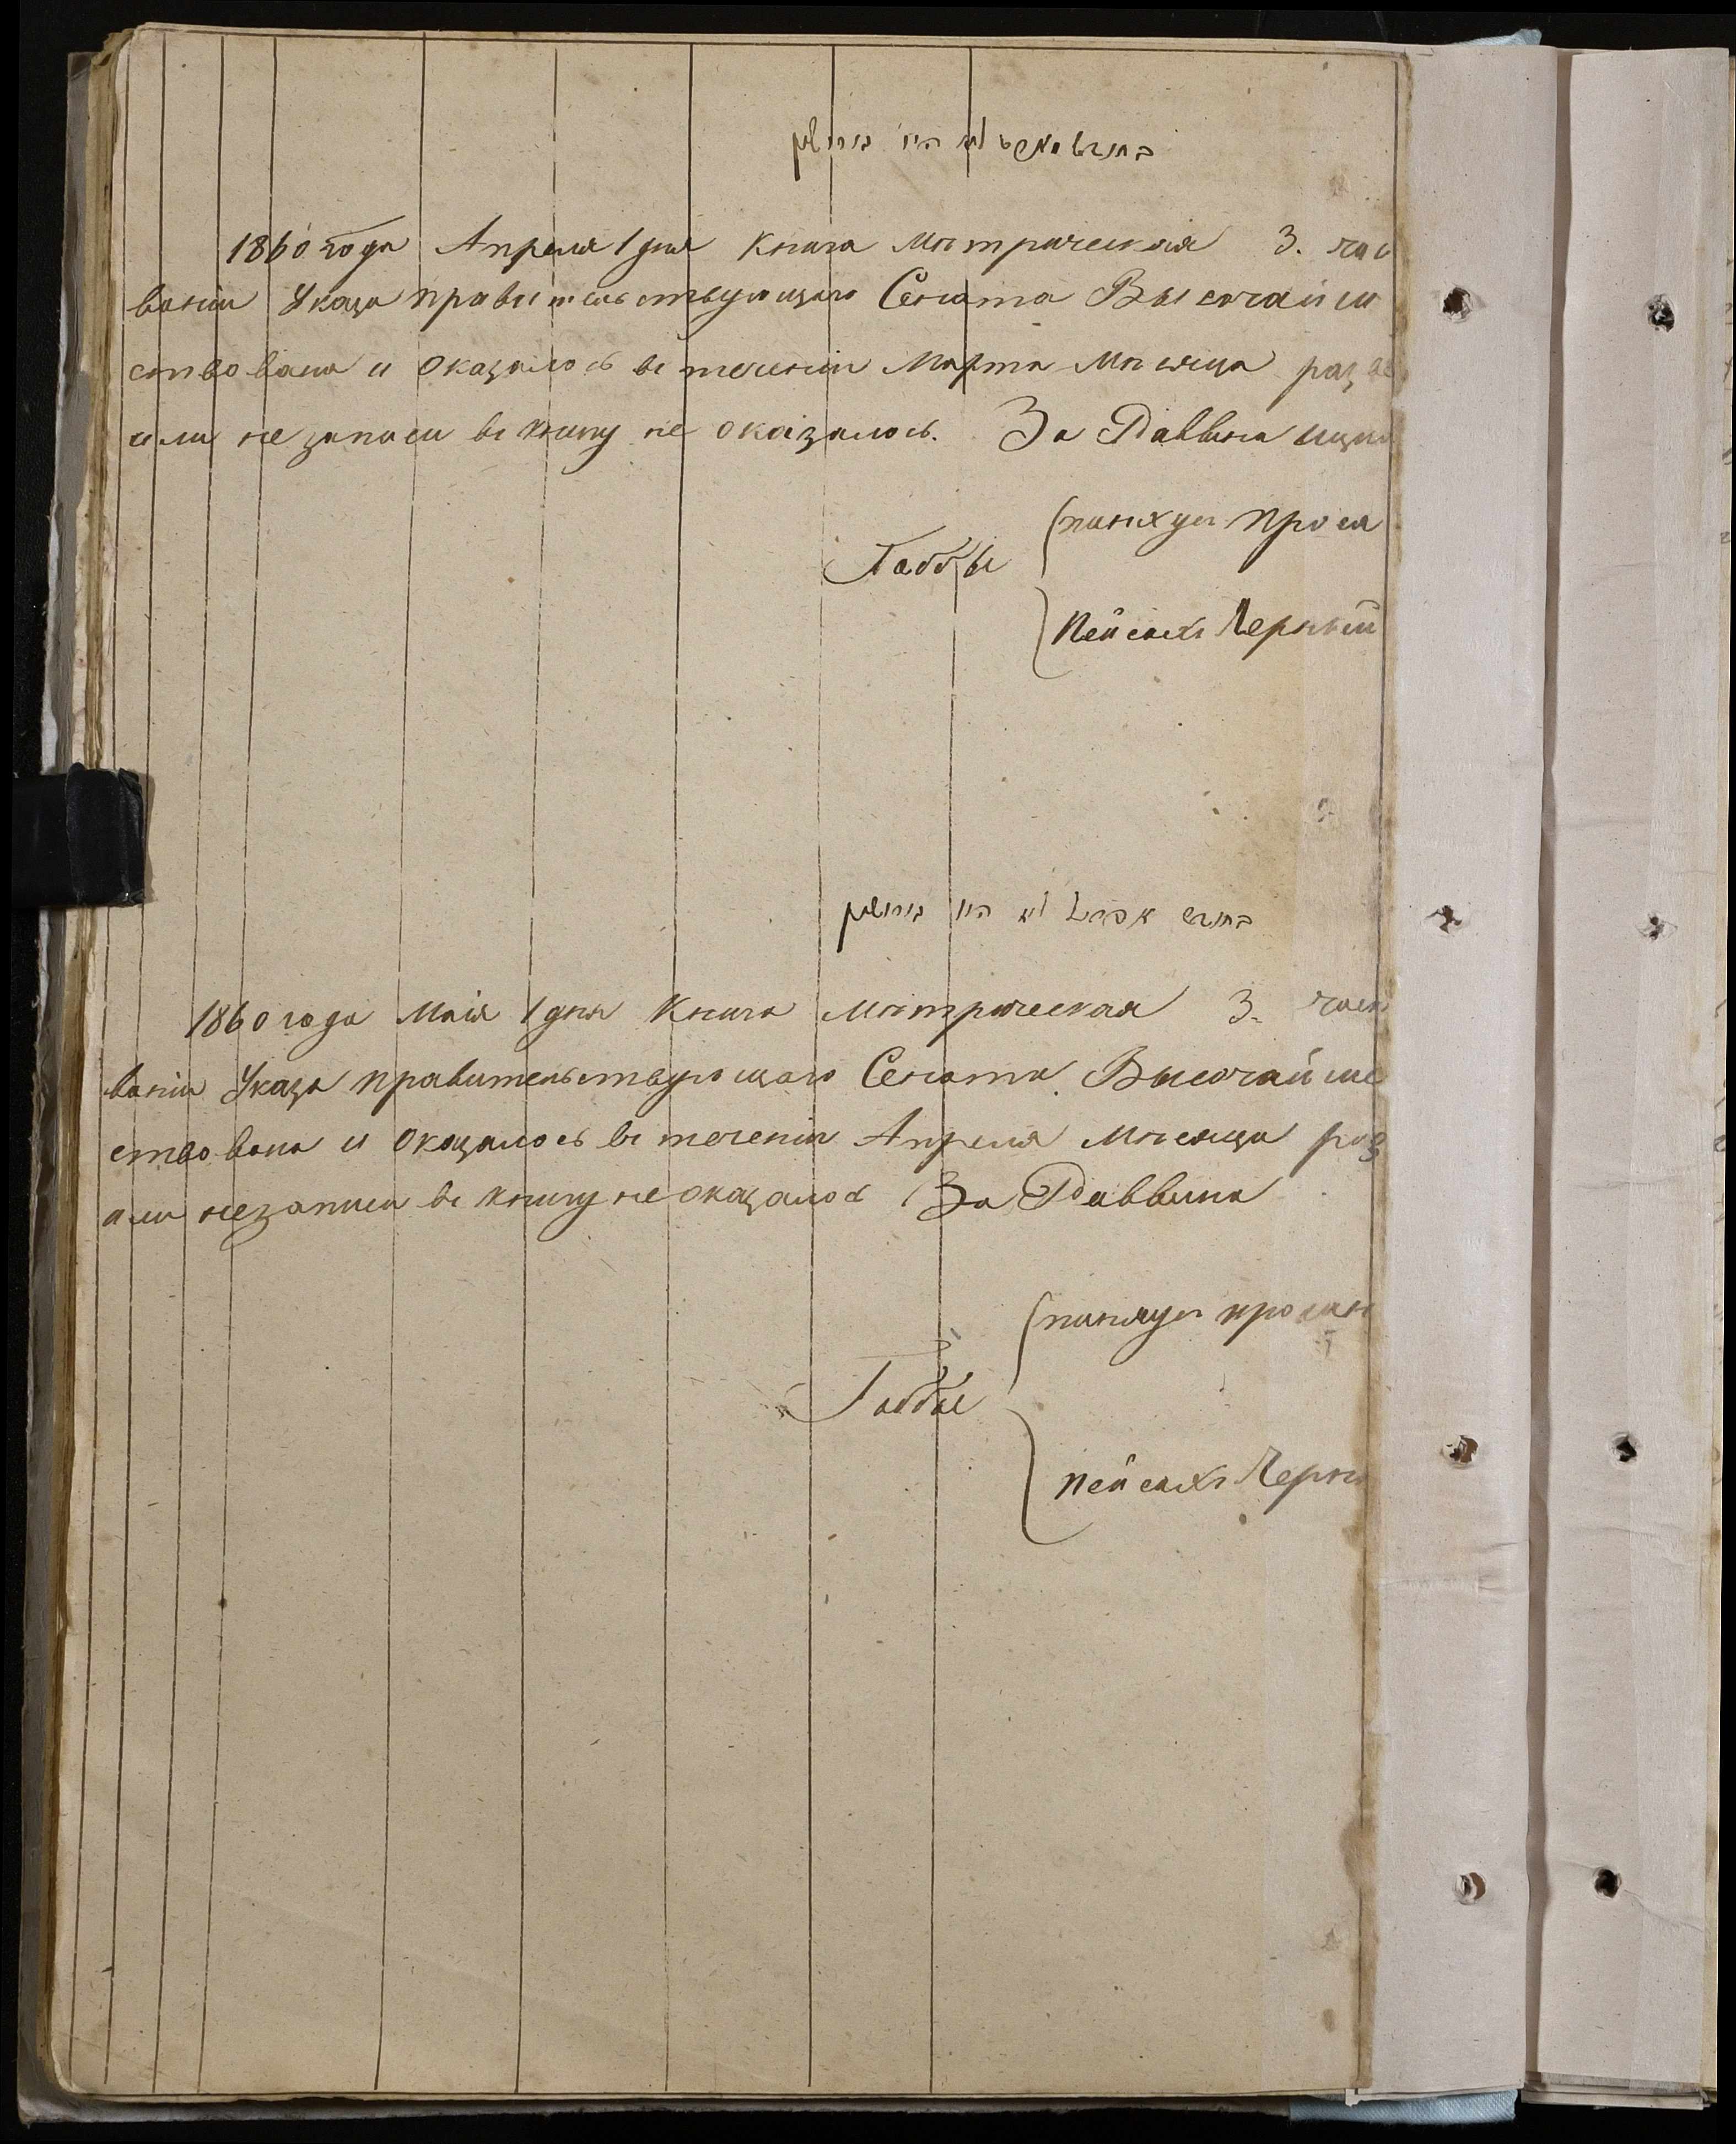 1860 года Апреля 1 дня Книга Метрическая 3. час
ваніи Указа правительствующаго Сената Высочайш
ствована и оказалось въ теченіи Марта Месяца раз
или не записи въ книгу не оказалось. За Раввина
Габбы
пинхусъ
Пейсахъ Черный
1860 года Маія 1 дня Книга Метрическая 3. част
ваніи Указа правительствующаго Сената Высочайше
ствована и оказалось въ теченіи Апреля Месяца раз
или не записи въ книгу не оказалось За Раввина
пинхусъ
Габбы
Пейсахъ Черны